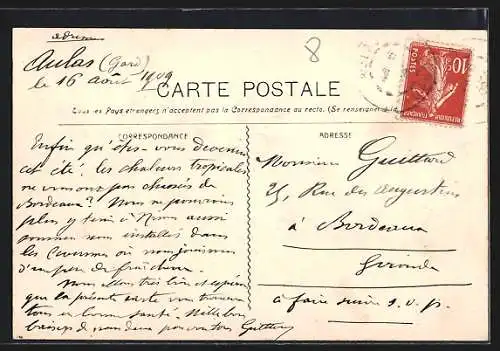 adresse
Aulas (Gard)
le 16 Août 1909
8
10c
POSTES
RÉPUBLIQUE FRANÇAISE
CARTE POSTALE
Tous les Pays étrangers n'acceptent pas la Correspondance au recto. (Se renseigner à la
CORRESPONDANCE
Enfin qu'êtes-vous devenus
cet été. les chaleurs tropicales
ne vous ont pas chassés de
Bordeaux? Nous ne pouvions
plus y tenir à Nîmes aussi
sommes nous installés dans
les Cévennes où nous jouissons
d'un peu de fraîcheur.
Nous allons très bien et espérons
que la présente carte vous trouvera
tous en bonne santé. Mille bons
baisers de nous deux pour vous tous
ADRESSE
Monsieur Guittard
25, Rue des Augustins
à Bordeaux
Gironde
à faire suivre s.v.p.